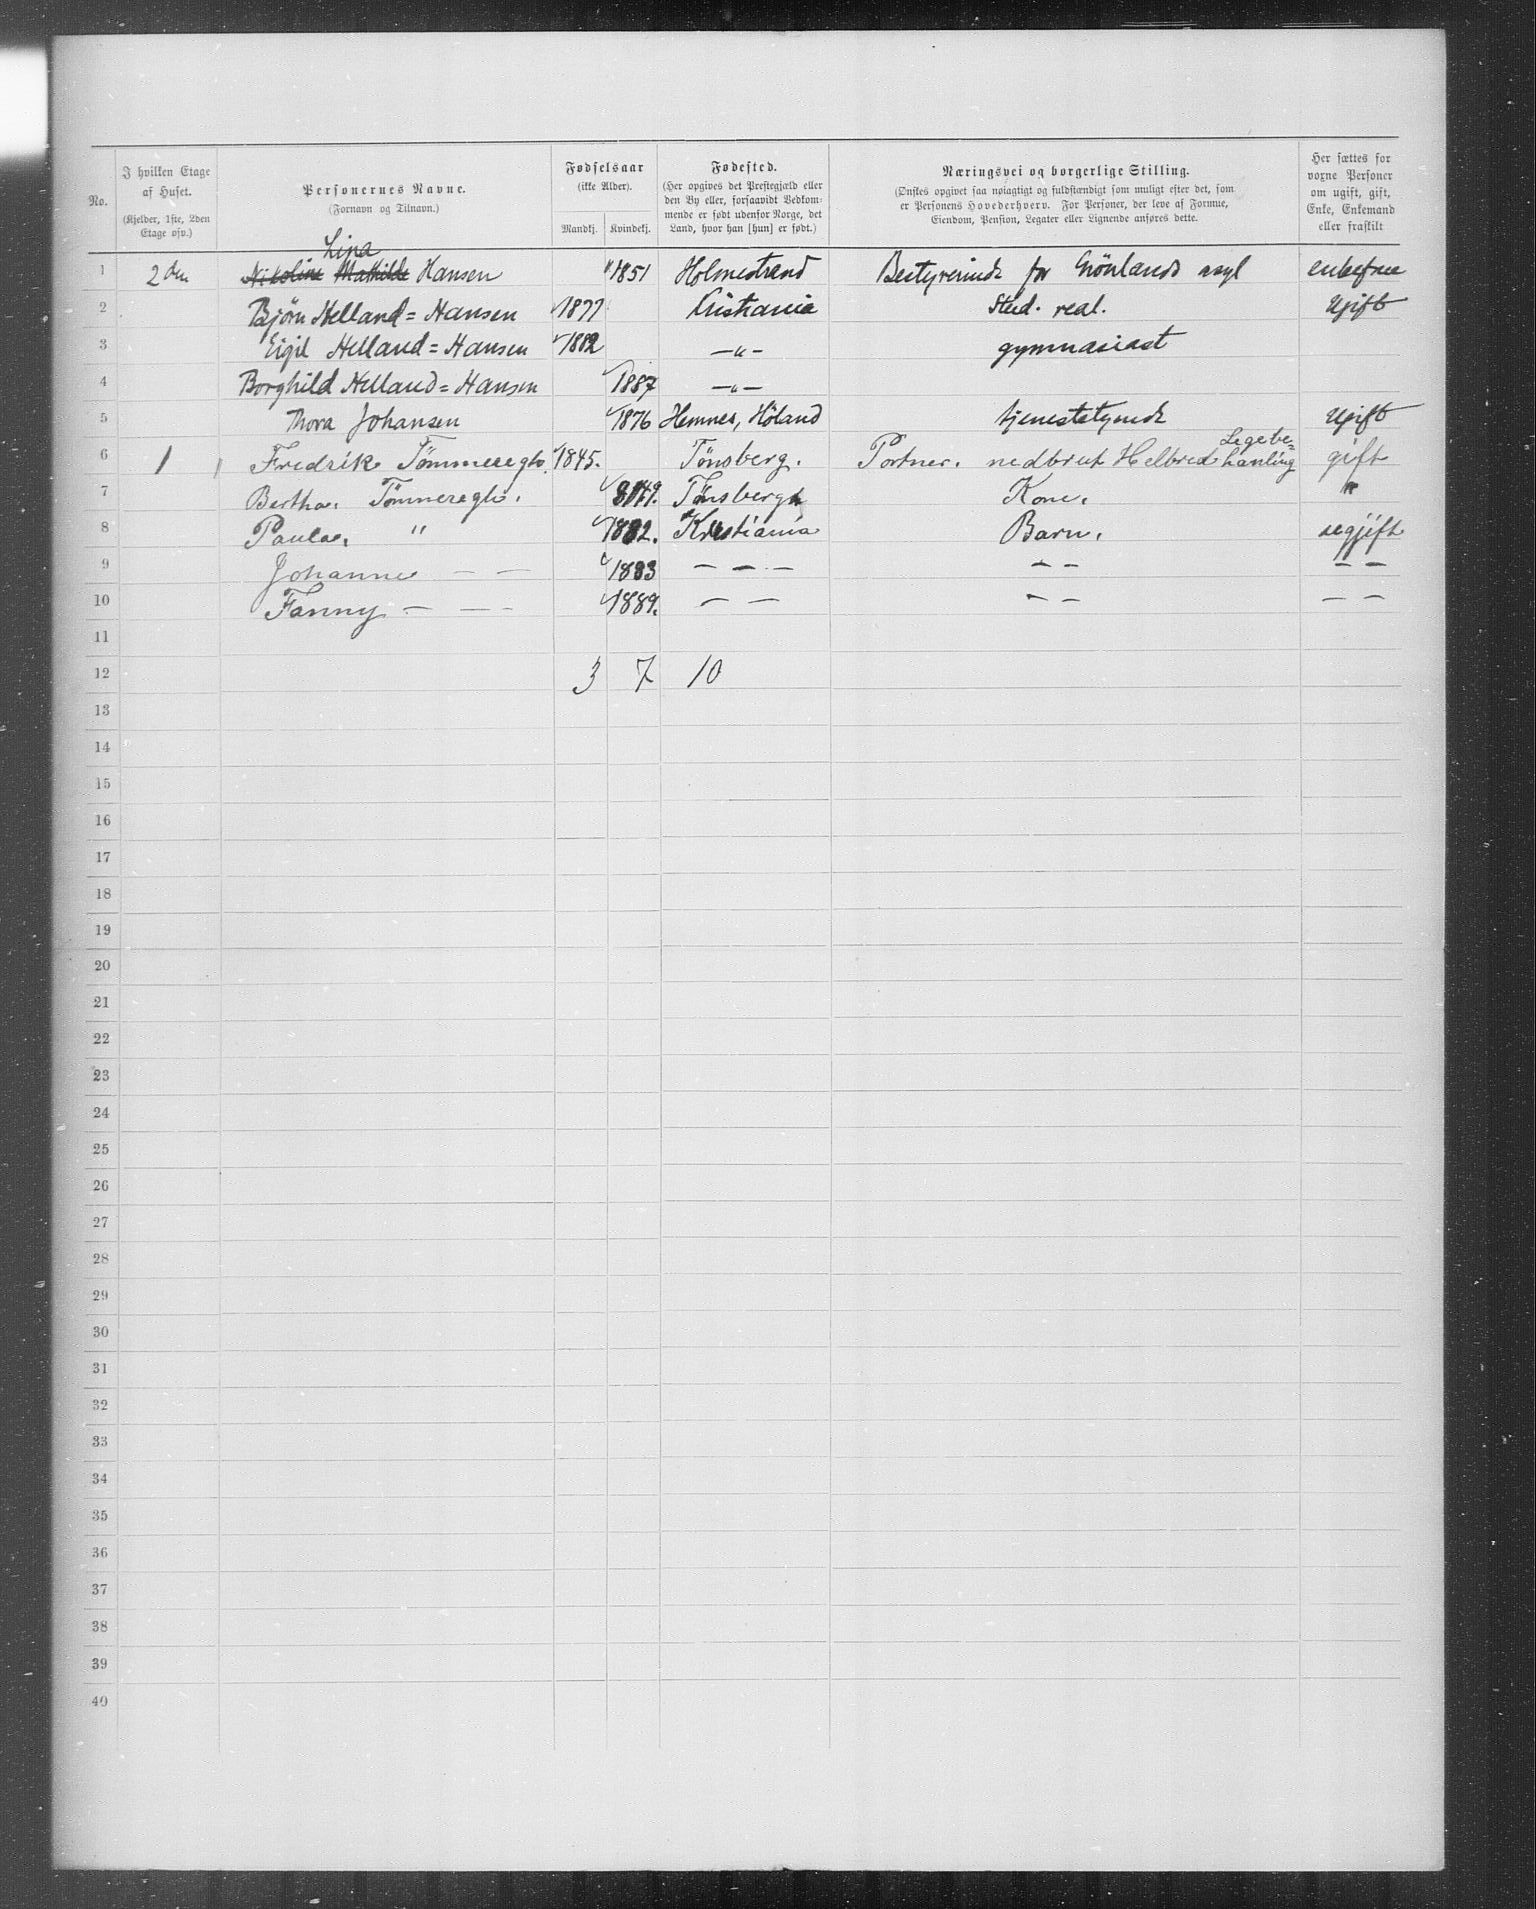 No.
I hvilken Etage af Huset.
(Kjelder, 1ste, 2den Etage osv.)
Personernes Navne.
(Fornavn og Tilnavn.)
Fødselsaar
(ikke Alder).
Mandkj. Kvindekj.
Fødested.
(Her opgives det Prestegjæld eller
den By eller, forsaavidt Vedkom-
mende er født udenfor Norge, det
Land, hvor han [hun] er født.)
Næringsvei og borgerlige Stilling.
(Ønskes opgivet saa nøiagtigt og fuldstændigt som muligt efter det, som
er Personens Hovederhverv. For Personer, der leve af Formue,
Eiendom, Pension, Legater eller Lignende anføres dette.
Her sættes for
voxne Personer
om ugift, gift,
Enke, Enkemand
eller fraskilt
Lina
1 2den Nikoline Mathilde Hansen 1851 Holmestrand Bestyrerinde for Grönlands asyl enkefrue
2 Bjørn Helland=Hansen 1877 Kristiania Stud. real. Ugift
3 Eigil Helland=Hansen 1882 —„— gymnasiast
4 Borghild Helland=Hansen 1887 —„—
5 Thora Johansen 1876 Hemnes, Höland tjenestetyende Ugift
Legebe=
6 1 Fredrik Tömmeregh. 1845. Tönsberg. Portner. nedbrut Helbred hanling gift
7 Bertha. Tömmeregh. 1849. Tönsberg Kone. "
8 Paula. " 1882. Kristiania Barn. uegjift
9 Johanne — — 1883 — — — — — — —
10 Fanny — — — 1889. — — — — — —
11
12 3 7 10
13
14
15
16
17
18
19
20
21
22
23
24
25
26
27
28
29
30
31
32
33
34
35
36
37
38
39
40